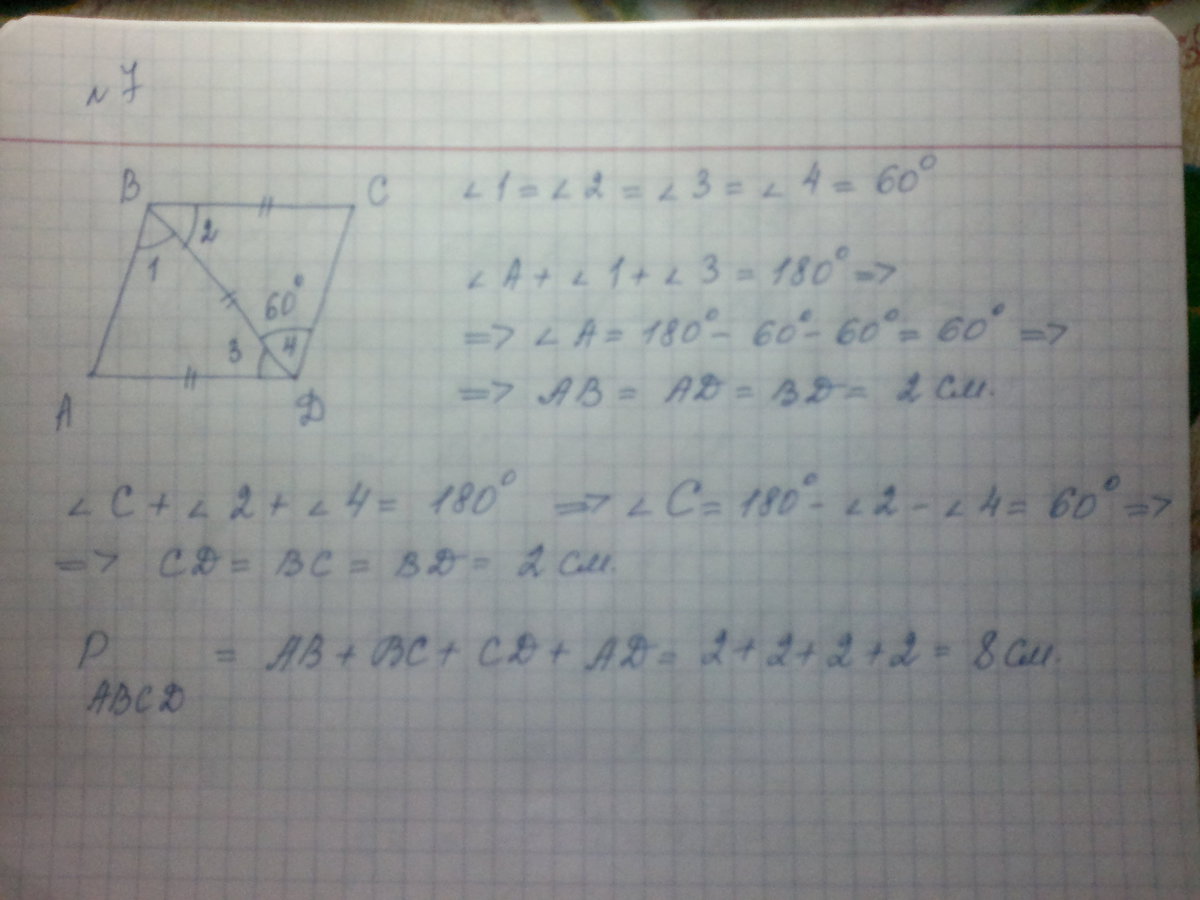 № 7
B C
2
1
60°
3 4
A D
∠1 = ∠2 = ∠3 = ∠4 = 60°
∠A + ∠1 + ∠3 = 180° =>
=> ∠A = 180° - 60° - 60° = 60° =>
=> AB = AD = BD = 2 см.
∠C + ∠2 + ∠4 = 180° => ∠C = 180° - ∠2 - ∠4 = 60° =>
=> CD = BC = BD = 2 см.
P = AB + BC + CD + AD = 2 + 2 + 2 + 2 = 8 см.
ABCD